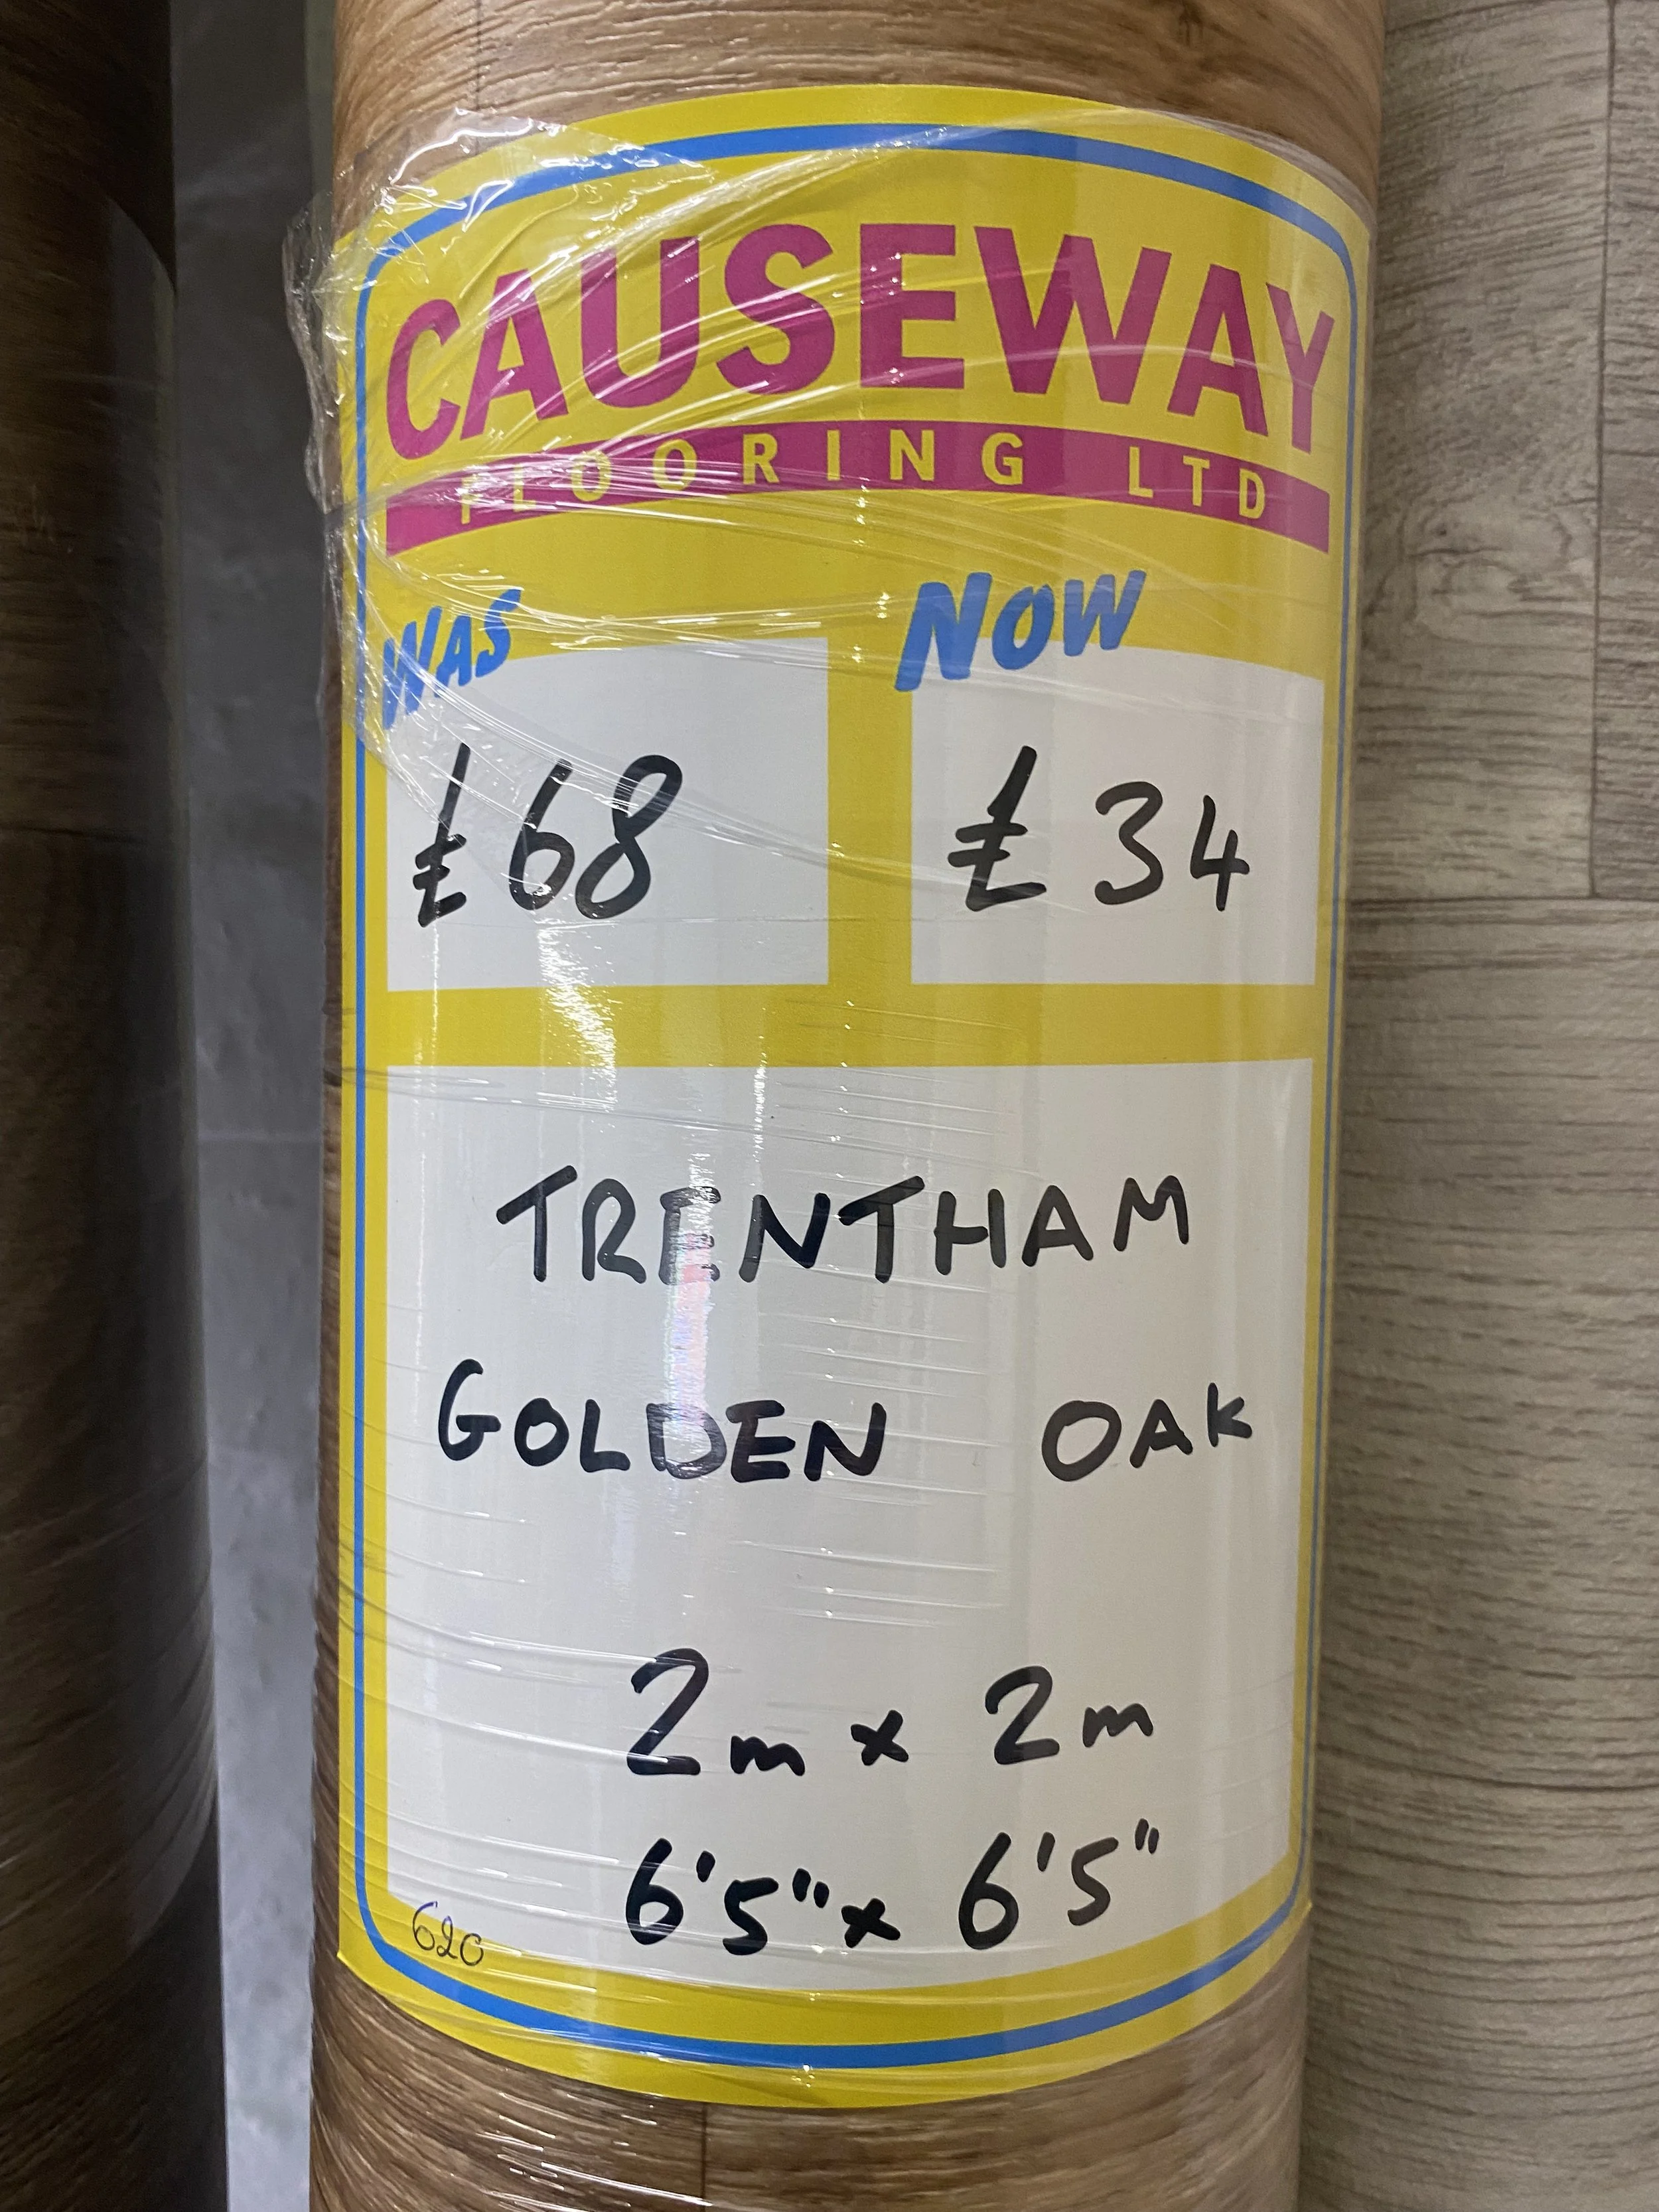 CAUSEWAY
FLOORING LTD
WAS NOW
£68 £34
TRENTHAM
GOLDEN OAK
2m x 2m
6'5" x 6'5"
620